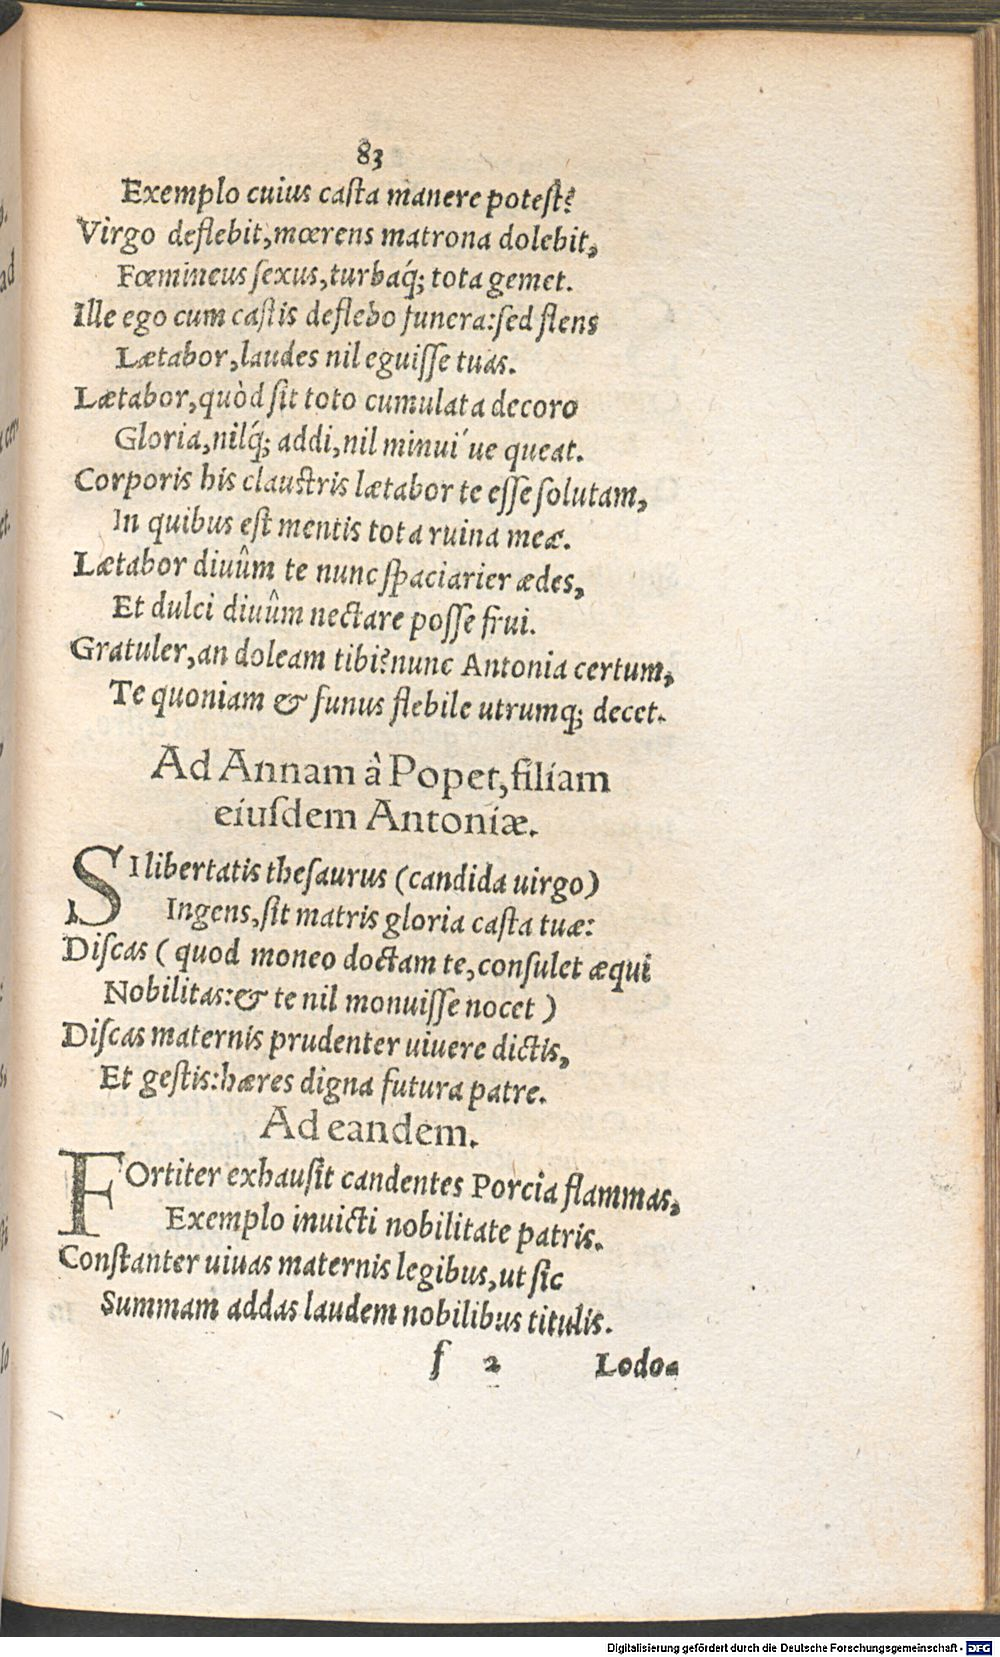 83
Exemplo cuius caſta manere poteſt?
Virgo deflebit, mœrens matrona dolebit,
Fœmineus ſexus, turbaq́; tota gemet.
Ille ego cum caſtis deflebo funera: ſed flens
Lætabor, laudes nil eguiſſe tuas.
Lætabor, quòd ſit toto cumulata decoro
Gloria, nilq́; addi, nil minui´ue queat.
Corporis his clauſtris lætabor te eſſe ſolutam,
In quibus eſt mentis tota ruina meæ.
Lætabor diuûm te nunc ſpaciarier ædes,
Et dulci diuûm nectare poſſe frui.
Gratuler, an doleam tibi? nunc Antonia certum,
Te quoniam & funus flebile utrumq; decet.
Ad Annam â Popet, filiam
eiuſdem Antoniæ.
SI libertatis theſaurus (candida uirgo)
Ingens, ſit matris gloria caſta tuæ:
Diſcas ( quod moneo doctam te, conſulet æqui
Nobilitas: & te nil monuiſſe nocet )
Diſcas maternis prudenter uiuere dictis,
Et geſtis: hæres digna futura patre.
Ad eandem.
FOrtiter exhauſit candentes Porcia flammas,
Exemplo inuicti nobilitate patris.
Conſtanter uiuas maternis legibus, ut ſic
Summam addas laudem nobilibus titulis.
f 2 Lodo-
Digitalisierung gefördert durch die Deutsche Forschungsgemeinschaft - DFG